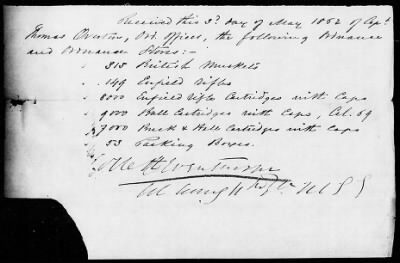 Received this 3d day of May 1862 of Capt
Thomas Overton, Ord. Officer, the following Ordnance
and Ordnance Stores:-
315 British Muskets
149 Enfield Rifles
8000 Enfield rifle Cartridges with Caps
9000 Ball Cartridges with Caps, Cal. 69
7000 Buck & Ball Cartridges with Caps
53 Packing Boxes.